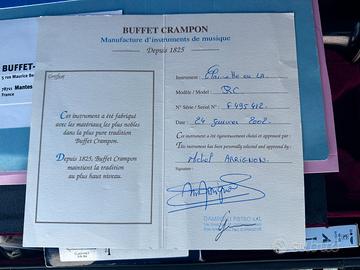 BUFFET CRAMPON
Manufacture d'instruments de musique
Depuis 1825
BUFFET-
5 rue Maurice Be
78711 Mantes
France
Certificat
Cet instrument a été fabriqué
avec les matériaux les plus nobles
dans la plus pure tradition
Buffet Crampon.
Depuis 1825, Buffet Crampon
maintient la tradition
au plus haut niveau.
Instrument : Clarinette en LA
Modèle / Model : RC
N° Série / Serial N° : F495412
Date : 24 Janvier 2002
Cet instrument a été rigoureusement choisi et approuvé par :
This instrument has been personally selected and approved by :
Michel ARRIGNON
Signature :
subito